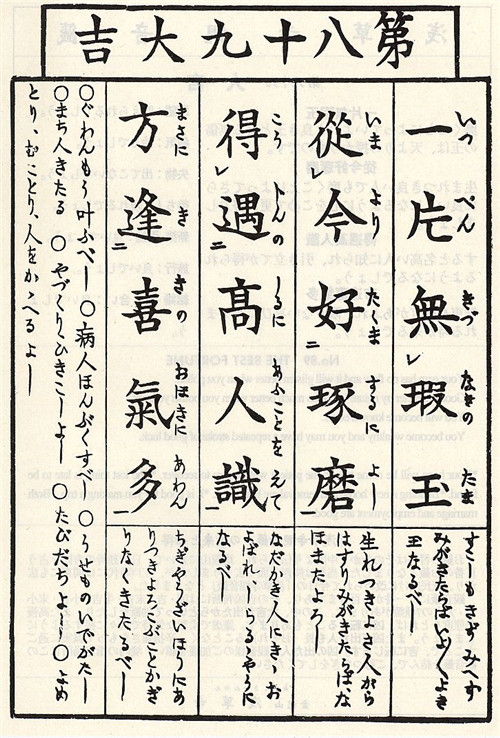 第八十九大吉
いつぺんきづなきのたま
一片無レ瑕玉
すこしもきずみへず
みがきたらばいよ〱よき
玉なるべし
いまよりたくまするによし
從レ今好二琢磨一
生れつきよき人がら
はすりみがきたらばな
ほまたよろし
こうじんのしるにあふことをえて
得レ遇二高人識一
なだかき人にきゝお
よばれしらるゝやうに
なるべし
まさにききのおほきにあわん
方逢二喜氣多一
ちぎやうざいほうにあ
りつきよろこぶことかぎ
りなし
○ぐわんもう叶ふべし ○病人ほんぶくすべし ○うせものいでがたし
○まち人きたる ○やづくりひきこしよし ○たびだちよし ○よめ
とり、むことり、人をかゝへるよし